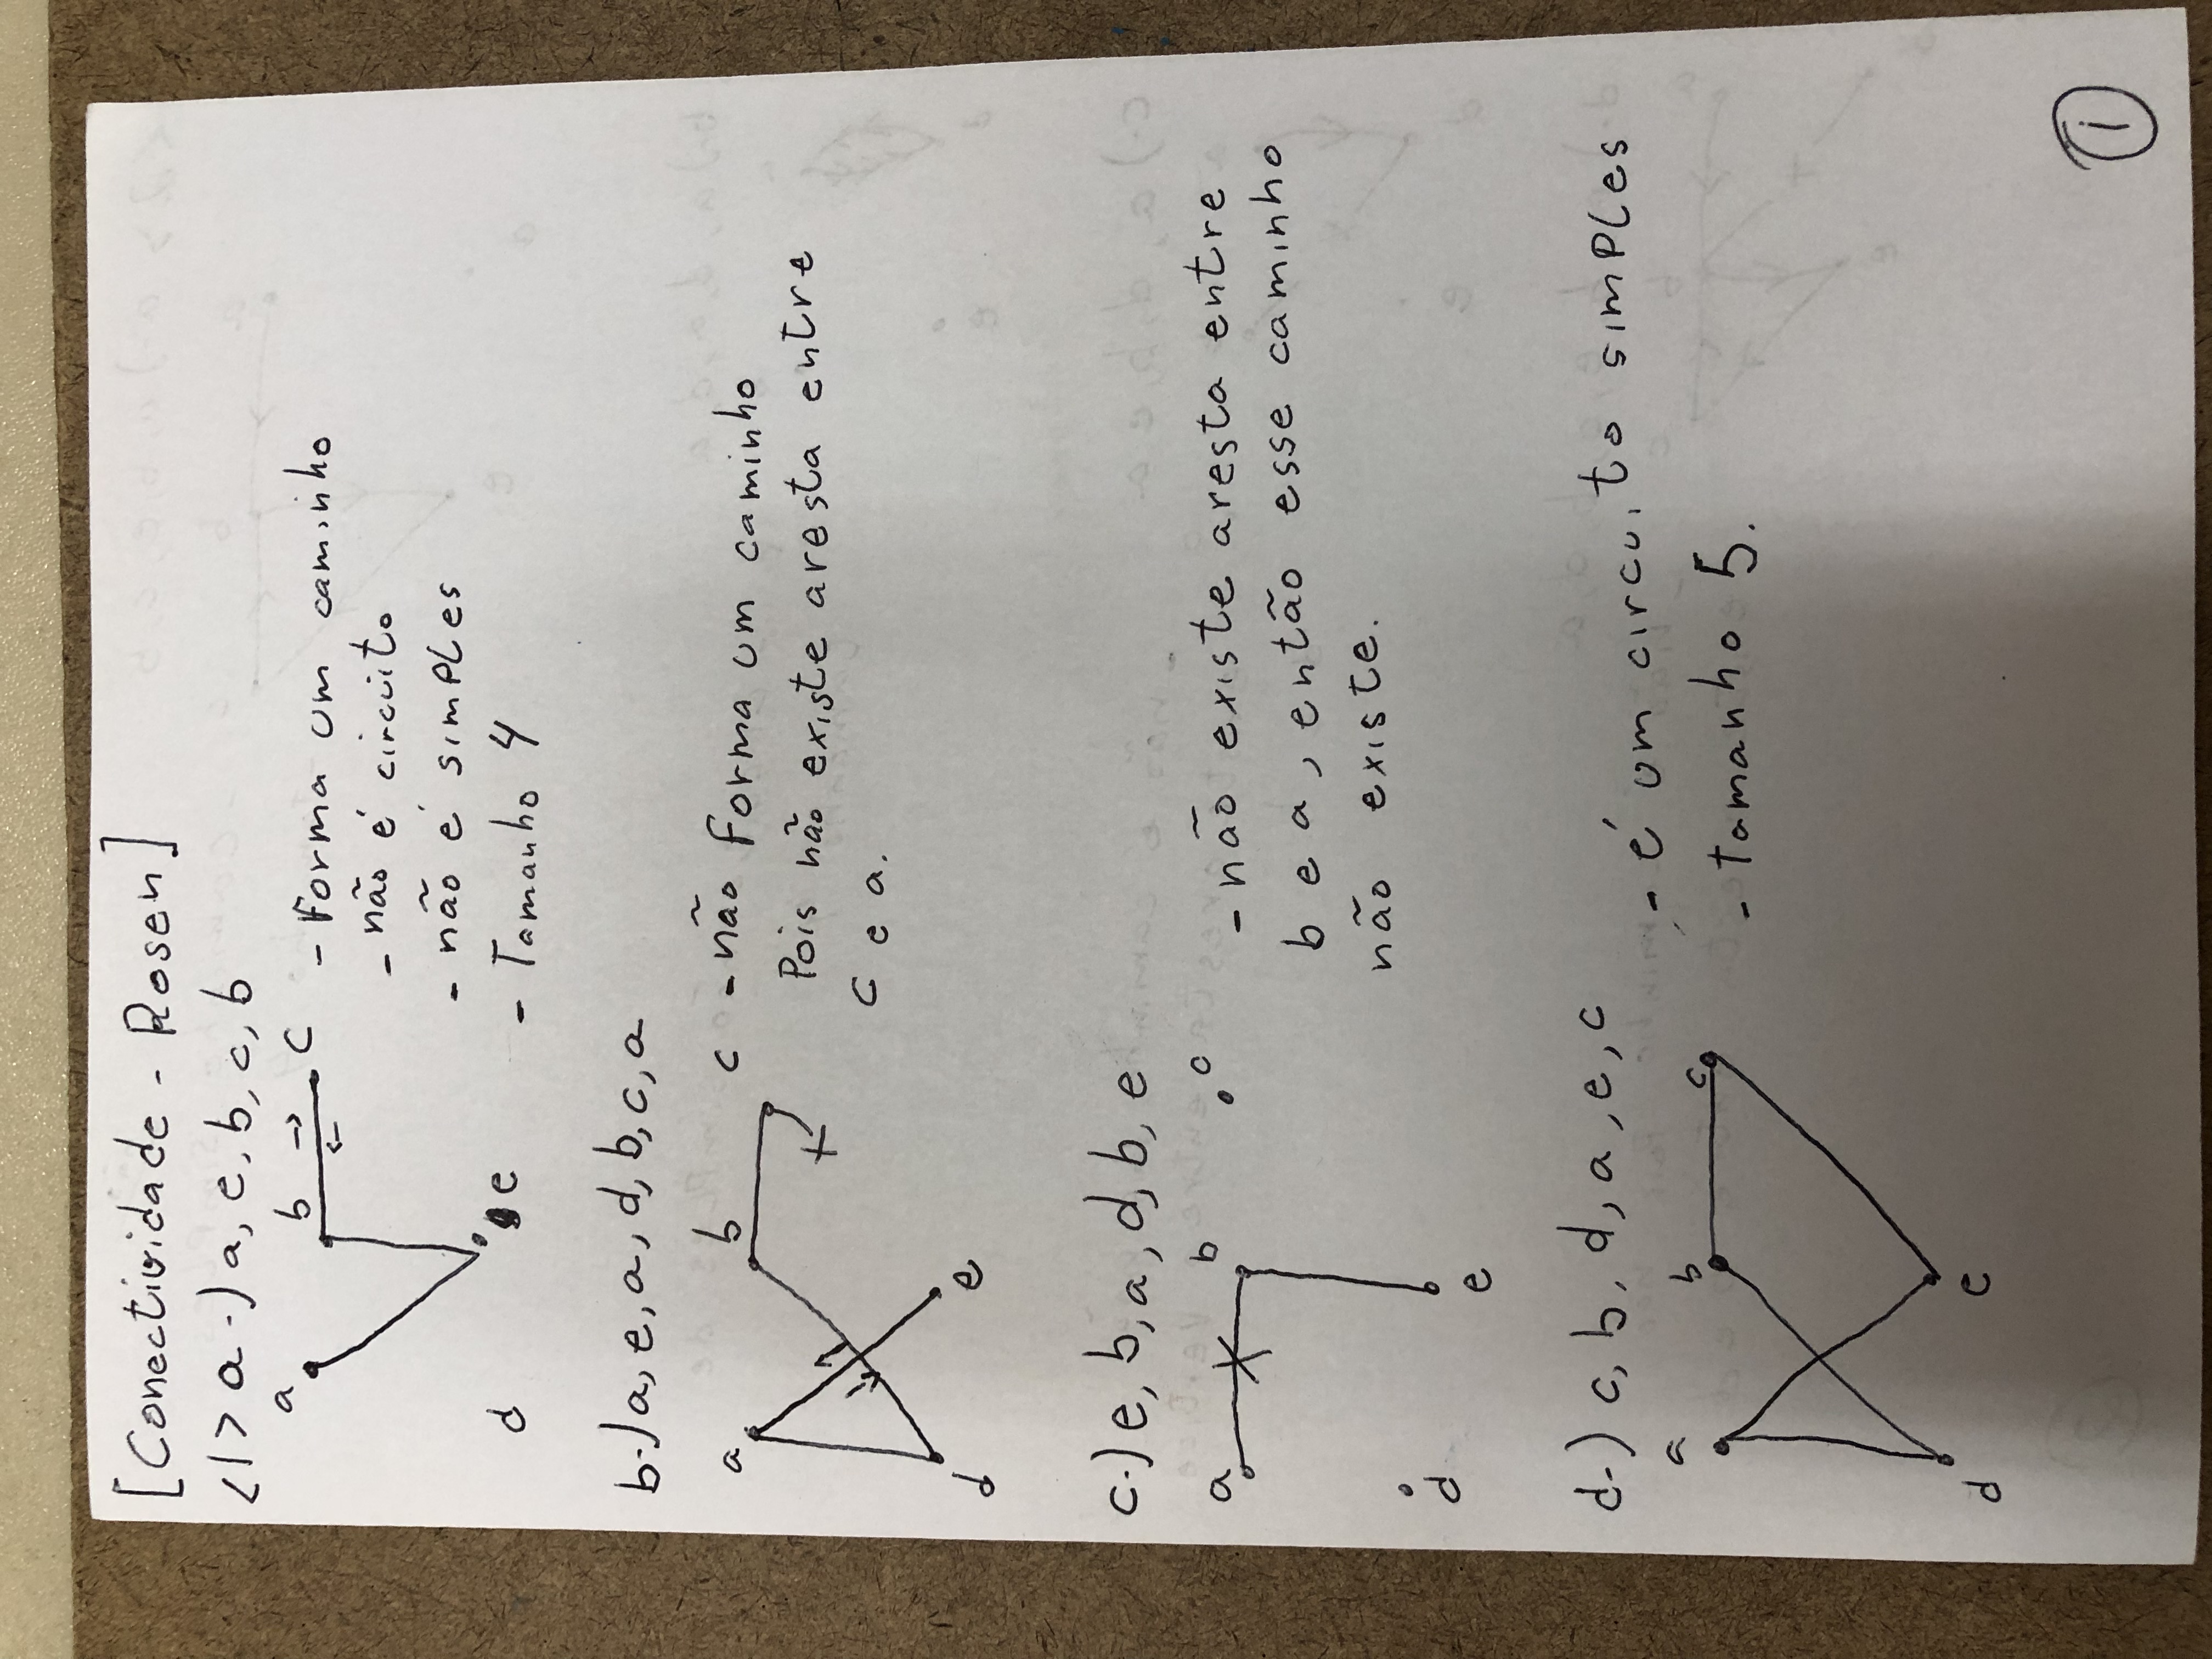 [Conectividade - Rosen]
<1> a-) a, e, b, c, b
a b → c - Forma um caminho
←
- não é circuito
- não é simples
d e - Tamanho 4
b-) a, e, a, d, b, c, a
a b c - não Forma um caminho
Pois não existe aresta entre
c e a.
d e
c-) e, b, a, d, b, e
a b c - não existe aresta entre
b e a, então esse caminho
não existe.
d
e
d-) c, b, d, a, e, c - é um circuito simples
a b c - tamanho 5.
d e
1